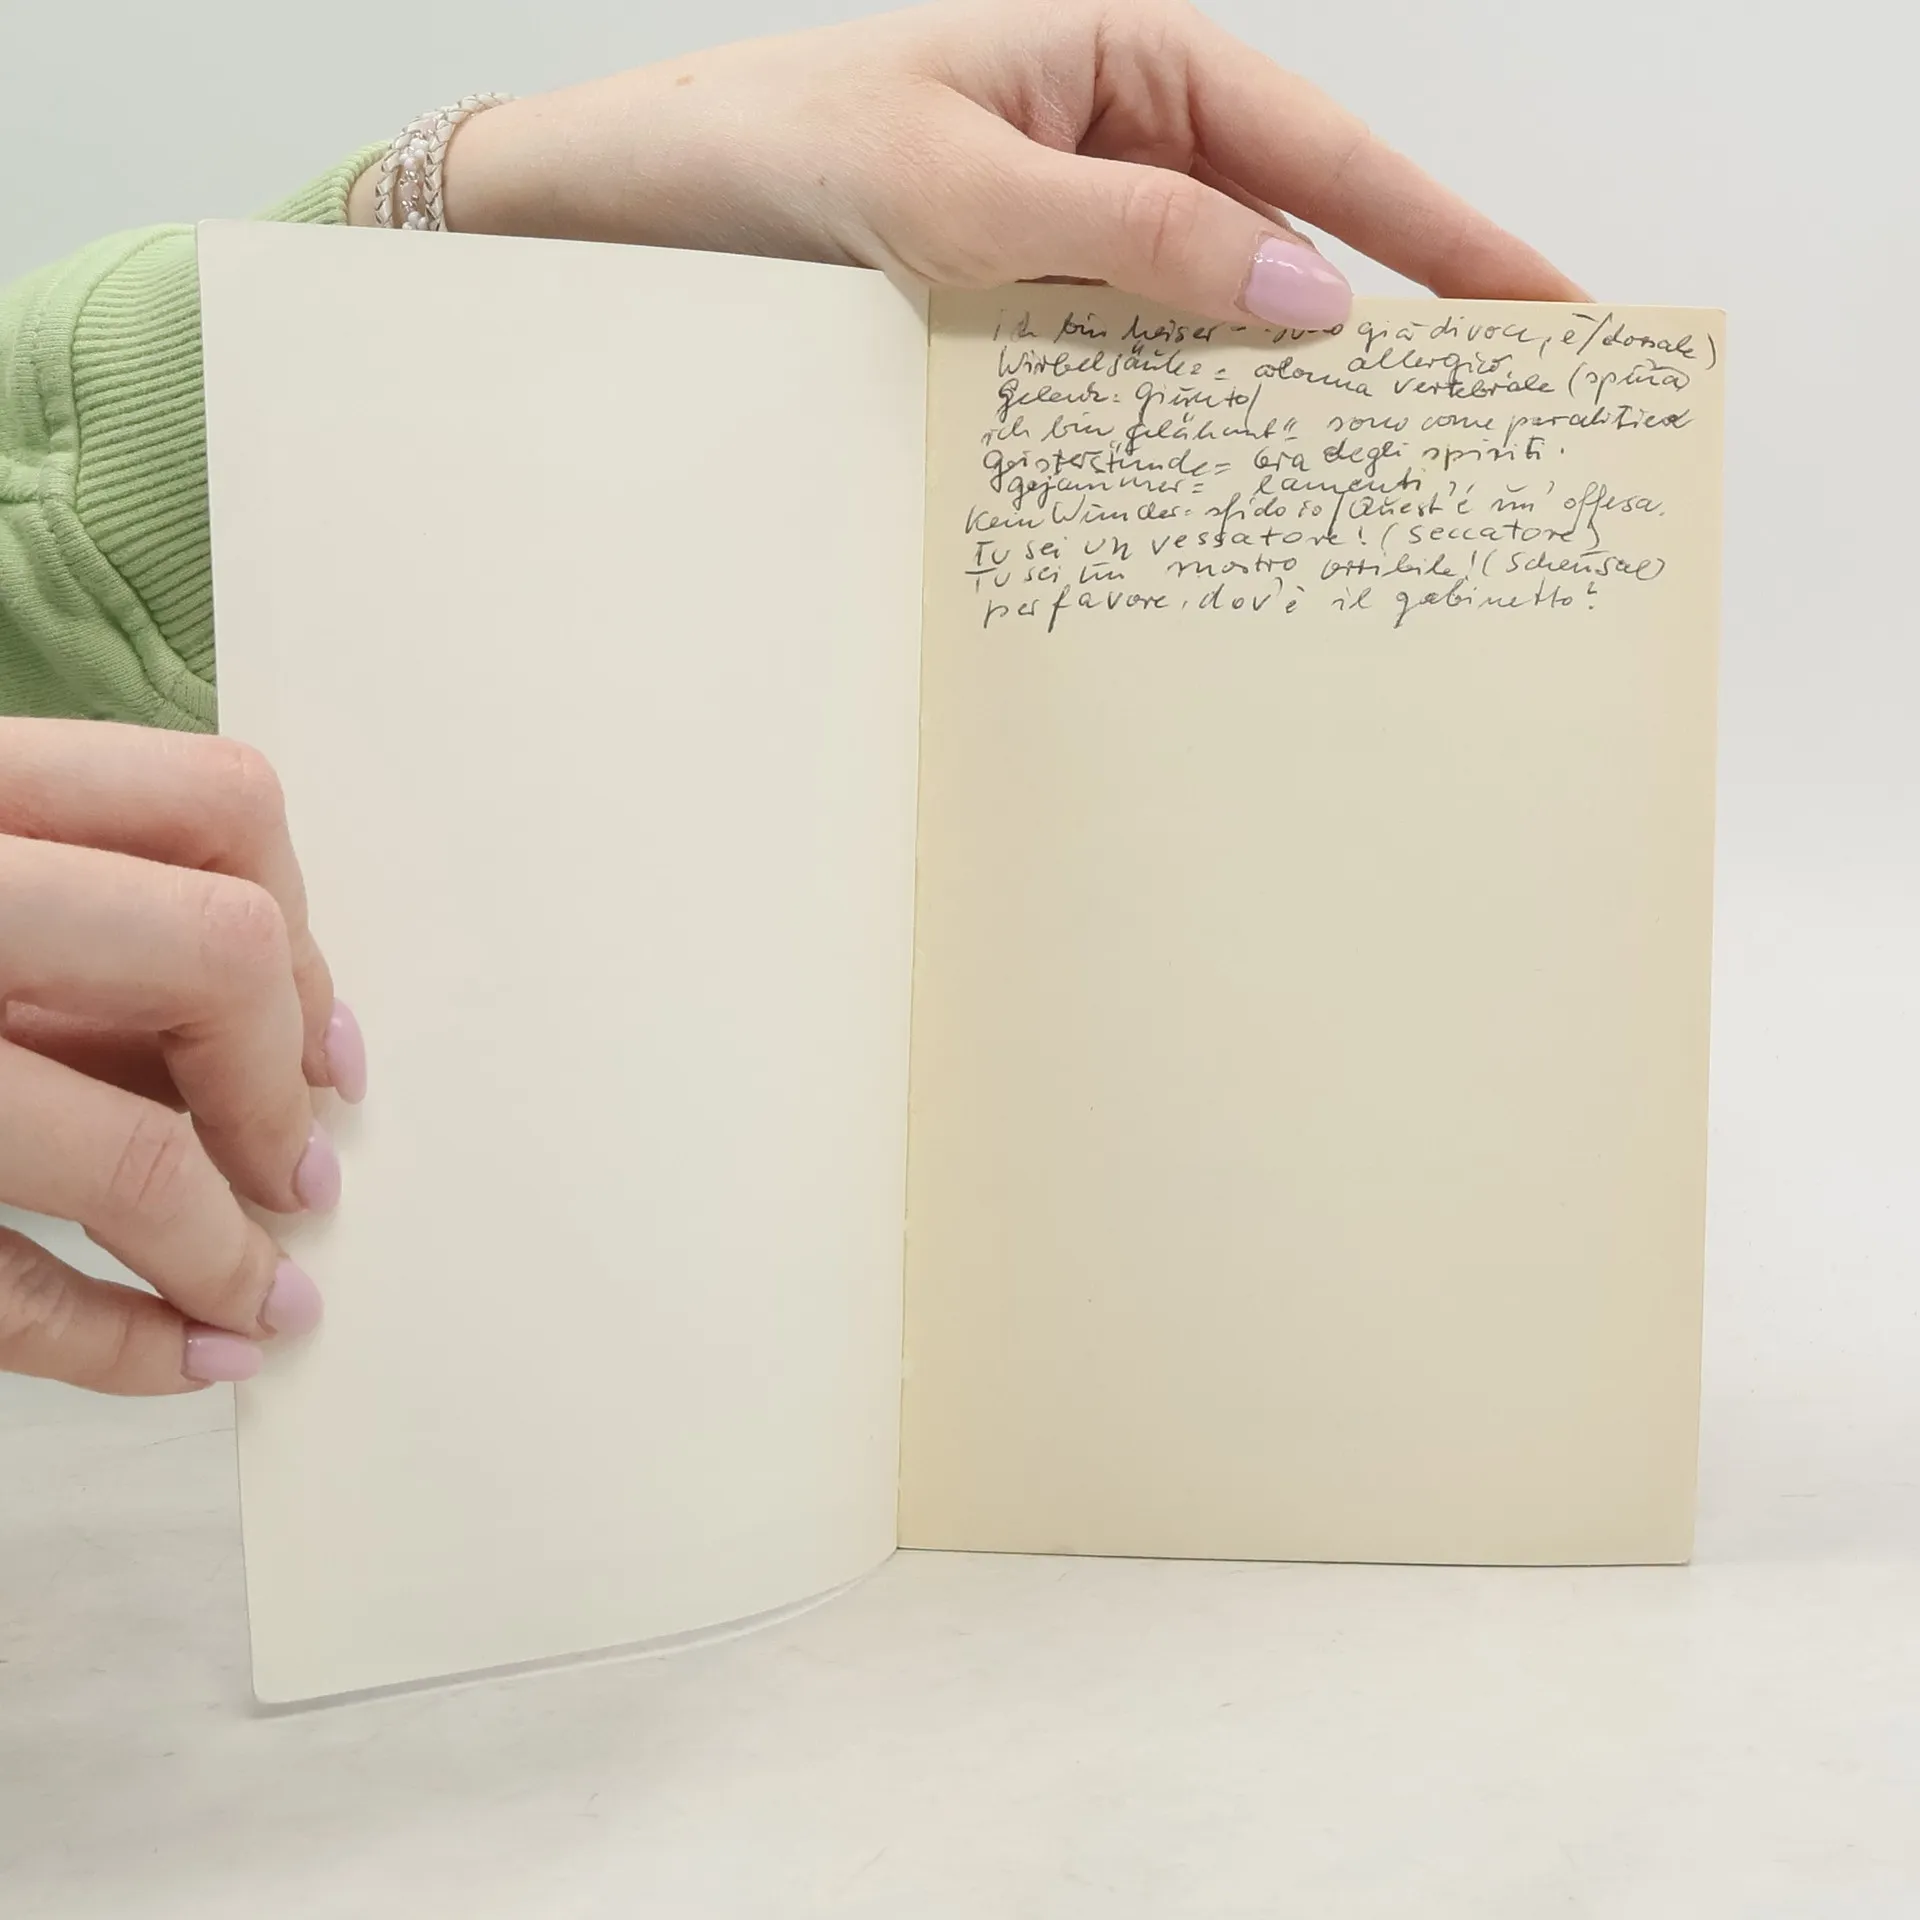 ich bin heiser = giù di voce, è / dorsale)
Wirbelsäule = colonna vertebrale (spina
allergico,
Gelenk = Giunto /
ich bin gelähmt = sono come paralitico
Geisterstunde = ora degli spiriti.
gejammer = lamenti,
Kein Wunder = sfido io / Quest'è un' offesa.
Tu sei un vessatore! (seccatore)
Tu sei un mostro orribile! (Scheusal)
per favore, dov'è il gabinetto?